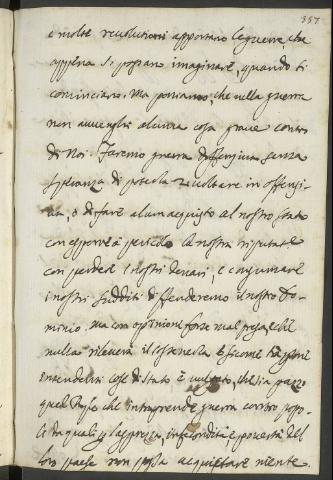 357
e molte revolutioni apportano le guerre, che
appena si possano imaginare, quando si
cominciano. Ma poniamo, che nella guerra
non avvenghi alcuna cosa grave contro
di Noi. Faremo guerra diffensiva senza
speranza di poterla voltare in offensi-
va, ò di fare alcun acquisto al nostro stato
con esporre à pericolo la nostra riputat.e
con perdere i nostri denari, e consumare
i nostri sudditi diffenderemo il nostro Do-
minio. Ma con opinione forse mal presa, ché
nulla rileverà il sostenerla
intendenti cose di stato è vulgato, che sia pazzo
quel Prſpe che intraprende guerra contro popo-
li da quali per l'asprezza, infecondità e povertà del
loro paese non possa acquistare niente.